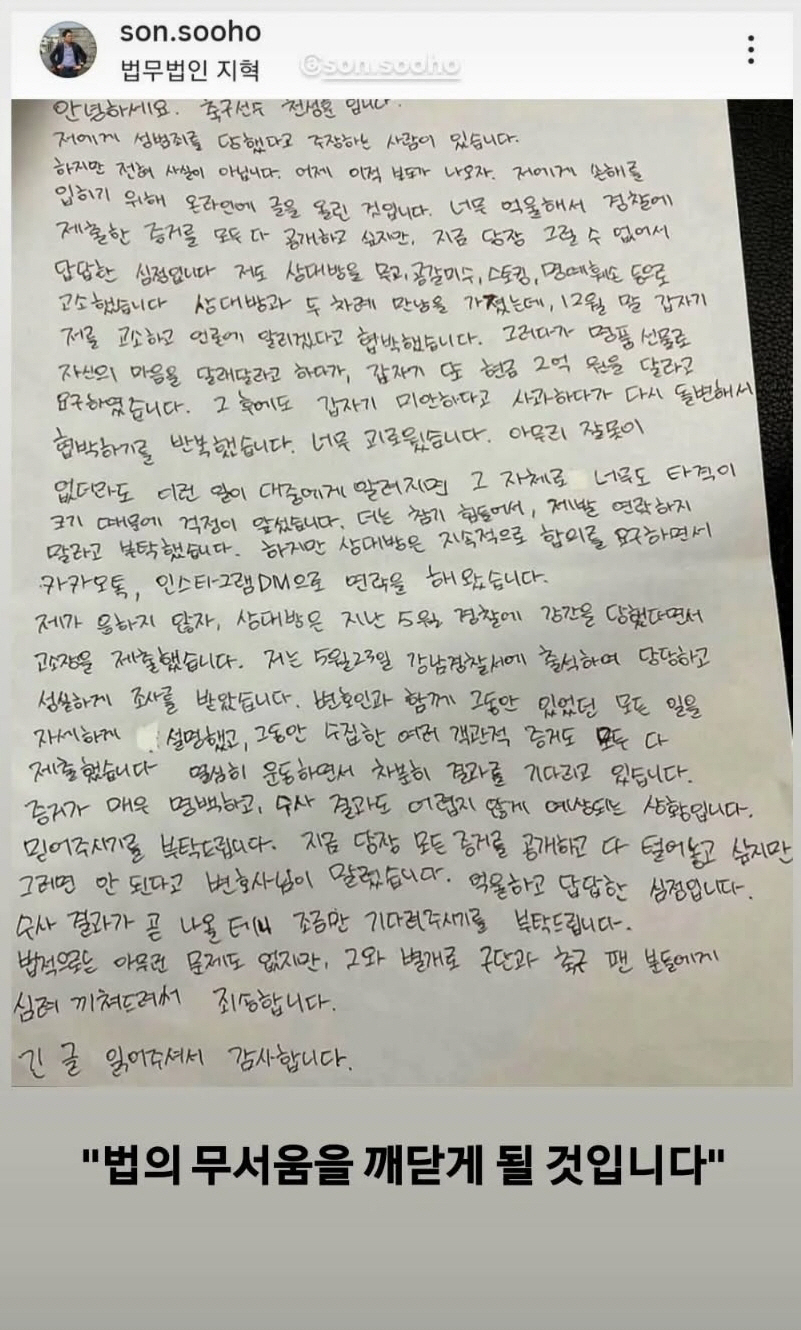 son.sooho
법무법인 지혁
@son.sooho
안녕하세요. 축구선수 천성훈 입니다.
저에게 성범죄를 당했다고 주장하는 사람이 있습니다.
하지만 전혀 사실이 아닙니다. 어제 이적 보도가 나오자. 저에게 손해를
입히기 위해 온라인에 글을 올린 것입니다. 너무 억울해서 경찰에
제출한 증거를 모두 다 공개하고 싶지만, 지금 당장 그럴 수 없어서
답답한 심정입니다 저도 상대방을 무고, 공갈미수, 스토킹, 명예훼손 등으로
고소했습니다 상대방과 두 차례 만남을 가졌는데, 12월 말 갑자기
저를 고소하고 언론에 알리겠다고 협박했습니다. 그러다가 명품 선물로
자신의 마음을 달래달라고 하다가, 갑자기 또 현금 2억 원을 달라고
요구하였습니다. 그 후에도 갑자기 미안하다고 사과하다가 다시 돌변해서
협박하기를 반복했습니다. 너무 괴로웠습니다. 아무리 잘못이
없더라도 이런 일이 대중에게 알려지면 그 자체로 너무도 타격이
크기 때문에 걱정이 앞섰습니다. 더는 참기 힘들어서, 제발 연락하지
말라고 부탁했습니다. 하지만 상대방은 지속적으로 합의를 요구하면서
카카오톡, 인스타그램DM으로 연락을 해왔습니다.
제가 응하지 않자, 상대방은 지난 5월 경찰에 강간을 당했다면서
고소장을 제출했습니다. 저는 5월23일 강남경찰서에 출석하여 당당하고
성실하게 조사를 받았습니다. 변호인과 함께 그동안 있었던 모든 일을
자세하게 설명했고, 그동안 수집한 여러 객관적 증거도 모두 다
제출했습니다 열심히 운동하면서 차분히 결과를 기다리고 있습니다.
증거가 매우 명백하고, 수사 결과도 어렵지 않게 예상되는 상황입니다.
믿어주시기를 부탁드립니다. 지금 당장 모든 증거를 공개하고 다 털어놓고 싶지만
그러면 안 된다고 변호사님이 말렸습니다. 억울하고 답답한 심정입니다.
수사 결과가 곧 나올 테니 조금만 기다려주시기를 부탁드립니다.
법적으로는 아무런 문제도 없지만, 그와 별개로 구단과 축구 팬 분들에게
심려 끼쳐드려서 죄송합니다.
긴 글 읽어주셔서 감사합니다.
"법의 무서움을 깨닫게 될 것입니다"